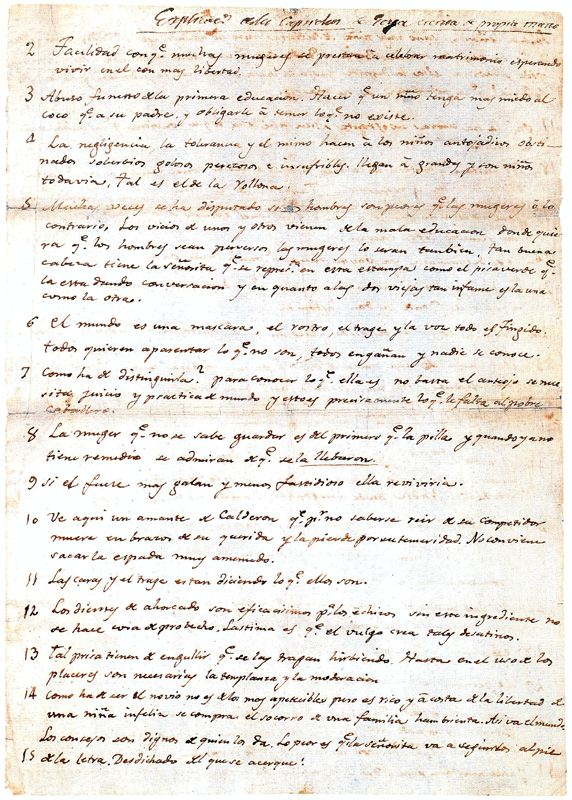 Explicacn. de los Caprichos de Goya escrita de propia mano
2 Facilidad con q.e muchas mugeres se prestan a celebrar matrimonio esperando
vivir en el con mas libertad.
3 Abuso funesto de la primera educacion. Hacer q.e un niño tenga mas miedo al
coco q.e a su padre, y obligarle a temer lo q.e no existe.
4 La negligencia, la tolerancia y el mimo hacen a los niños antojadizos obsti-
nados soberbios golosos perezosos e insufribles. llegan a grandes y son niños
todavia. Tal es el de la rollona.
5 Muchas veces se ha disputado si los hombres son peores q.e las mugeres ò lo
contrario, Los vicios de unos y otros vienen de la mala educacion donde quie
ra q.e los hombres sean perversos las mugeres lo seran tambien. tan buena
cabeza tiene la señorita q.e se represn.ta en esta estampa como el pisaverde q.e
la esta dando conversacion y en quanto a las dos viejas tan infame es la una
como la otra.
6 el mundo es una mascara, el rostro, el trage y la voz todo es fingido.
Todos quieren aparentar lo q.e no son, todos engañan y nadie se conoce.
7 Como ha de distinguirla? para conocer lo q.e ella es no basta el anteojo se nece
sita juicio y practica de mundo y esto es precisamente lo q.e le falta al pobre
caballero.
8 La muger q.e no se sabe guardar es del primero q.e la pilla y quando ya no
tiene remedio se admiran de q.e se la llebaron.
9 Si el fuere mas galan y menos fastidioso ella reviviria.
10 Ve aqui un amante de Calderon q.e p.r no saberse reir de su competidor
muere en brazos de su querida y la pierde por su temeridad. No conviene
sacar la espada muy a menudo.
11 Las caras y el trage estan diciendo lo q.e ellos son.
12 Los dientes de ahorcado son eficacisimos p.a los echizos sin este ingrediente no
se hace cosa de probecho. Lastima es q.e el vulgo crea tales desatinos.
13 Tal prisa tienen de engullir q.e se las tragan hirbiendo. Hasta en el uso de los
placeres son necesarias la templanza y la moderacion
14 Como ha de ser el novio no es de los mas apetecibles pero es rico, y à costa de la libertad de
una niña infeliz se compra el socorro de una familia hambrienta. Asi va el mundo
Los consejos son dignos de quien los da. Lo peor es q.e la señorita va a seguirlos al pie
15 de la letra. Desdichado del que se acerque!